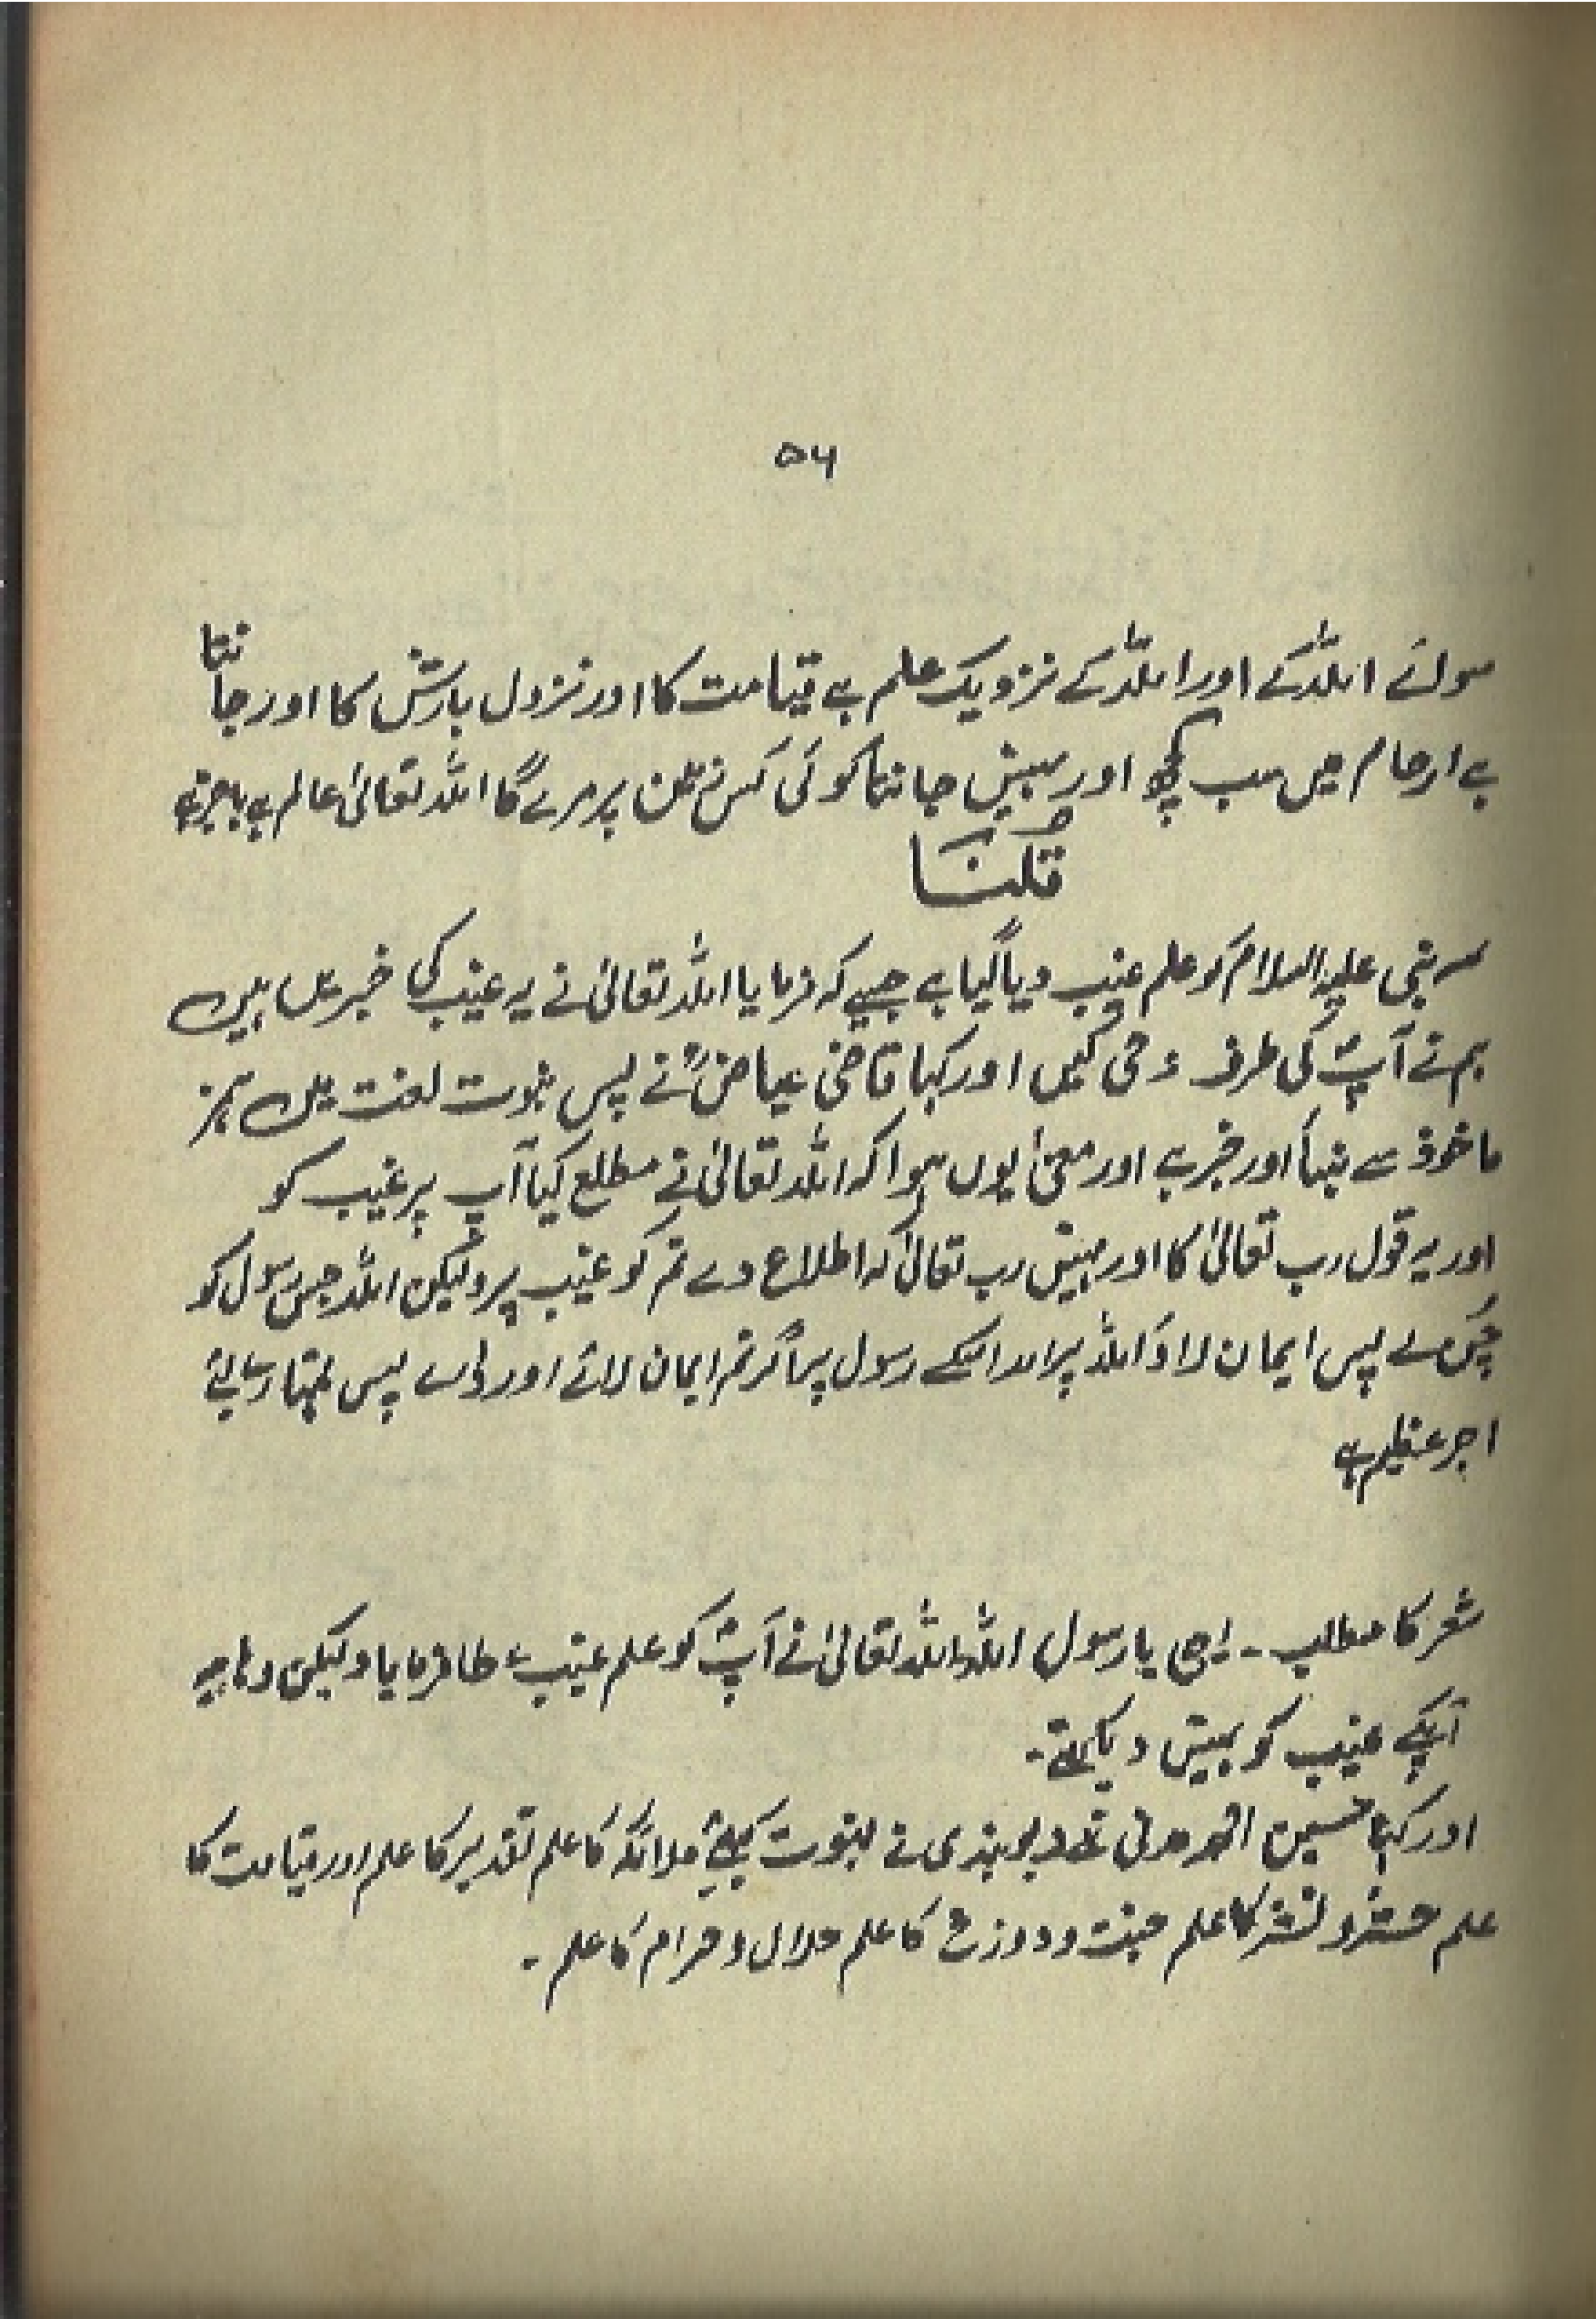 ۵۶
سوائے اللہ کے اور اللہ کے نزدیک علم ہے قیامت کا اور نزول بارش کا اور جانتا
ہے ارحام میں سب کچھ اور نہیں جانتا کوئی کس زمین پر مرے گا اللہ تعالیٰ عالم ہے باخبر ہے
قُلْنَا
ہر نبی علیہ السلام کو علم غیب دیا گیا ہے جیسے کہ فرمایا اللہ تعالیٰ نے یہ غیب کی خبریں ہیں
ہم نے آپؐ کی طرف وحی کیں اور کہا قاضی عیاضؒ نے پس نبوت لغت میں ہمز
ماخوذ ہے نبأ اور خبر ہے اور معنیٰ یوں ہوا کہ اللہ تعالیٰ نے مطلع کیا آپ پر غیب کو
اور یہ قول رب تعالیٰ کا اور نہیں رب تعالیٰ کہ اطلاع دے تم کو غیب پر ولیکن اللہ جس رسول کو
چن لے پس ایمان لاؤ اللہ پر اور اسکے رسول پر اگر تم ایمان لائے اور ڈرے پس تمہارے لئے
اجر عظیم ہے
شعر کا مطلب ۔ یا رسول اللہ اللہ تعالیٰ نے آپؐ کو علم غیب عطا فرمایا ولیکن وہابیہ
آپکے غیب کو نہیں دیکھتے ۔
اور کہا حسین احمد مدنی دیوبندی نے نبوت کیلئے ملائکہ کا علم تقدیر کا علم اور قیامت کا
علم حشر و نشر کا علم جنت و دوزخ کا علم حلال و حرام کا علم ۔